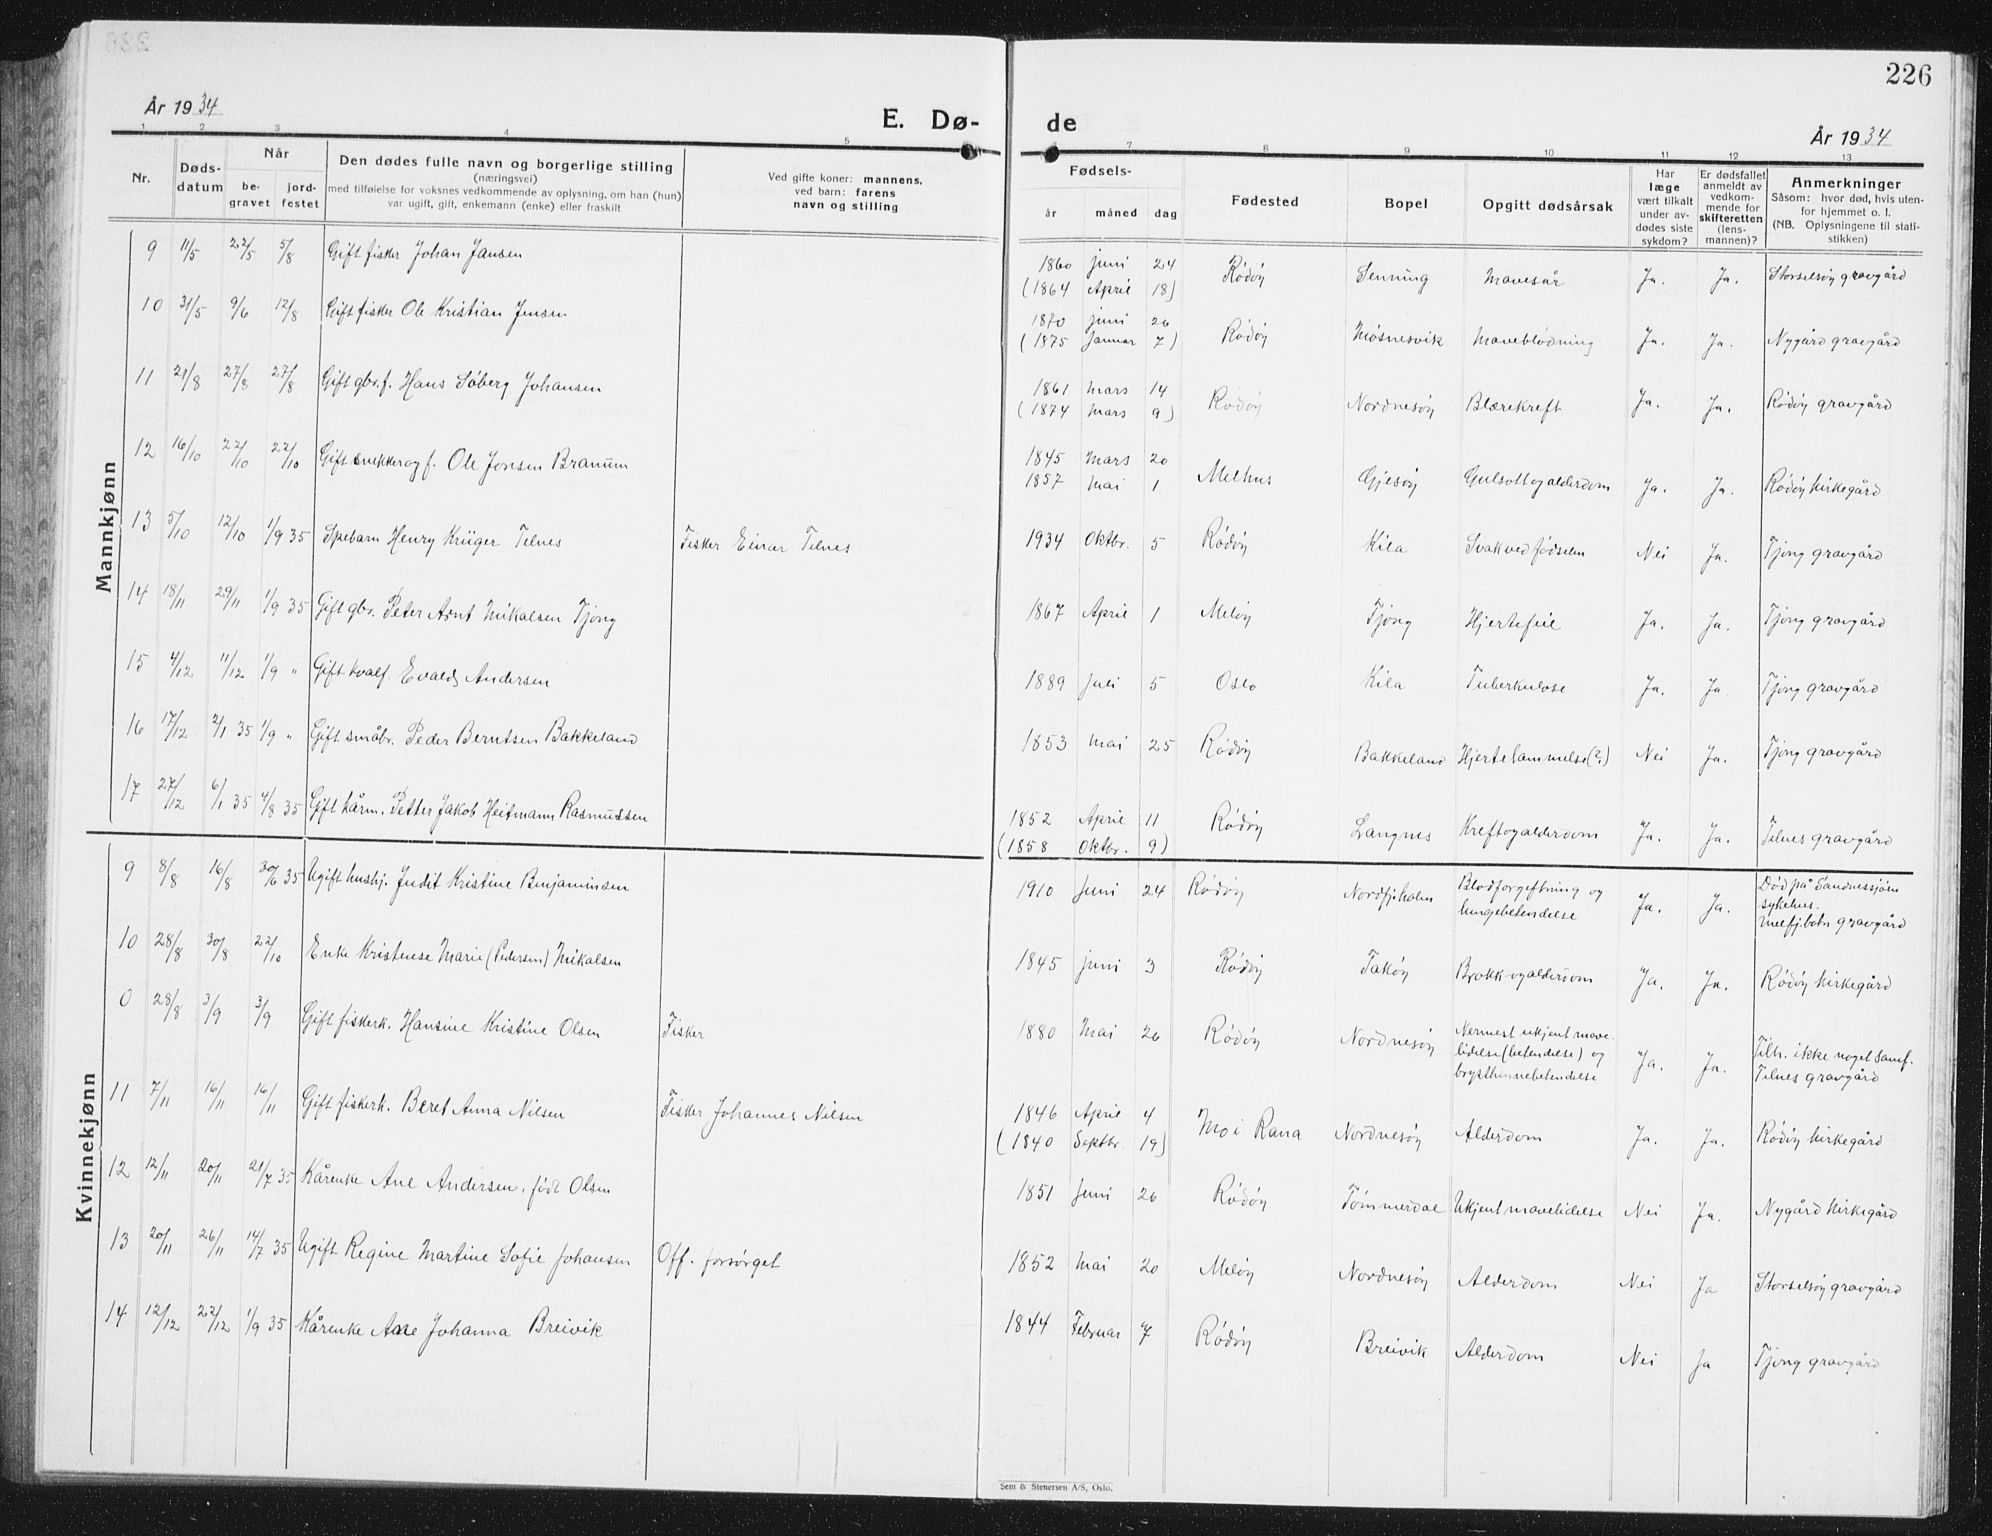 226
År 1934
E. Dø-
de
År 1934
1 2 3 4 5 6 7 8 9 10 11 12 13
Nr.
Døds-
datum
Når
be-
gravet
jord-
festet
Den dødes fulle navn og borgerlige stilling
(næringsvei)
med tilføielse for voksnes vedkommende av oplysning, om han (hun)
var ugift, gift, enkemann (enke) eller fraskilt
Ved gifte koner: mannens,
ved barn: farens
navn og stilling
Fødsels-
år måned dag
Fødested
Bopel
Opgitt dødsårsak
Har
læge
vært tilkalt
under av-
dødes siste
sykdom?
Er dødsfallet
anmeldt av
vedkom-
mende for
skifteretten
(lens-
mannen)?
Anmerkninger
Såsom: hvor død, hvis uten-
for hjemmet o. l.
(NB. Oplysningene til stati-
stikken)
Mannkjønn
9 11/5 22/5 5/8 Gift fisker Johan Jansen 1860 juni 24 Rødøy Senning Mavesår Ja. Ja. Storselsøy gravgård
(1864 April 18)
10 31/5 9/6 12/8 Gift fisker Ole Kristian Jensen 1870 juni 26 Rødøy Møsnesvik Maveblødning Ja. Ja. Nygård gravgård
(1875 Januar 7)
11 21/8 27/8 27/8 Gift gbr.f. Hans Søberg Johansen 1861 mars 14 Rødøy Nordnesøy Blærekreft Ja. Ja. Rødøy gravgård
(1874 mars 9)
12 16/10 22/10 22/10 Gift snekker og f. Ole Jonsen Branum 1845 mars 20 Melhus Gjesøy Gulsott og alderdom Ja. Ja. Rødøy kirkegård
1857 mai 1
13 5/10 12/10 1/9 35 Spebarn Henry Krüger Telnes Fisker Einar Telnes 1934 Oktbr. 5 Rødøy Kila Svak ved fødselen Nei Ja. Tjong gravgård
14 18/11 29/11 1/9 35 Gift gbr. Peter Arnt Mikalsen Tjong 1867 April 1 Meløy Tjong Hjertefeil Ja. Ja. Tjong gravgård
15 4/12 11/12 1/9 " Gift kvalf. Evald Andersen 1889 juli 5 Oslo Kila Tuberkulose Ja. Ja Tjong gravgård
16 17/12 2/1 35 1/9 " Gift småbr. Peder Berntsen Bakkeland 1853 mai 25 Rødøy Bakkeland Hjertelammelse(?) Nei Ja. Tjong gravgård
17 27/12 6/1 35 4/8 35 Gift kårm. Petter Jakob Heitmann Rasmussen 1852 April 11 Rødøy Langnes Kreft og alderdom Ja. Ja. Telnes gravgård
(1858 Oktbr. 9)
Kvinnekjønn
9 8/8 16/8 30/6 35 Ugift hushj. Judit Kristine Benjaminsen 1910 Juni 24 Rødøy Nordfj.holm Blodforgiftning og Ja. Ja. Død på Sandnessjøen
lungebetendelse sykehus.
Melfj.botn gravgård
10 28/8 30/8 22/10 Enke Kristense Marie (Pedersen) Mikalsen 1845 juni 3 Rødøy Takøy Brokk og alderdom Ja. Ja. Rødøy kirkegård
0 28/8 3/9 3/9 Gift fiskerk. Hansine Kristine Olsen Fisker 1880 Mai 26 Rødøy Nordnesøy Nermest ukjent mave- Ja. Ja. Tilh. ikke noget samf.
lidelse (betendelse) og Telnes gravgård
brysthinnebetendelse
11 7/11 16/11 16/11 Gift fiskerk. Beret Anna Nilsen Fisker Johannes Nilsen 1846 April 4 Mo i Rana Nordnesøy Alderdom Ja. Ja. Rødøy kirkegård
(1840 Septbr. 19)
12 12/11 20/11 21/7 35 Kårenke Ane Andersen, født Olsen 1851 Juni 26 Rødøy Tømmerdal Ukjent mavelidelse Nei Ja. Nygård kirkegård
13 20/11 26/11 14/7 35 Ugift Regine Martine Sofie Johansen Off. forsørget 1852 Mai 20 Meløy Nordnesøy Alderdom Nei Ja Storselsøy gravgård
14 12/12 22/12 1/9 35 Kårenke Ane Johanna Breivik 1844 Februar 7 Rødøy Breivik Alderdom Nei Ja Tjong gravgård
Sem & Stenersen A/S, Oslo.